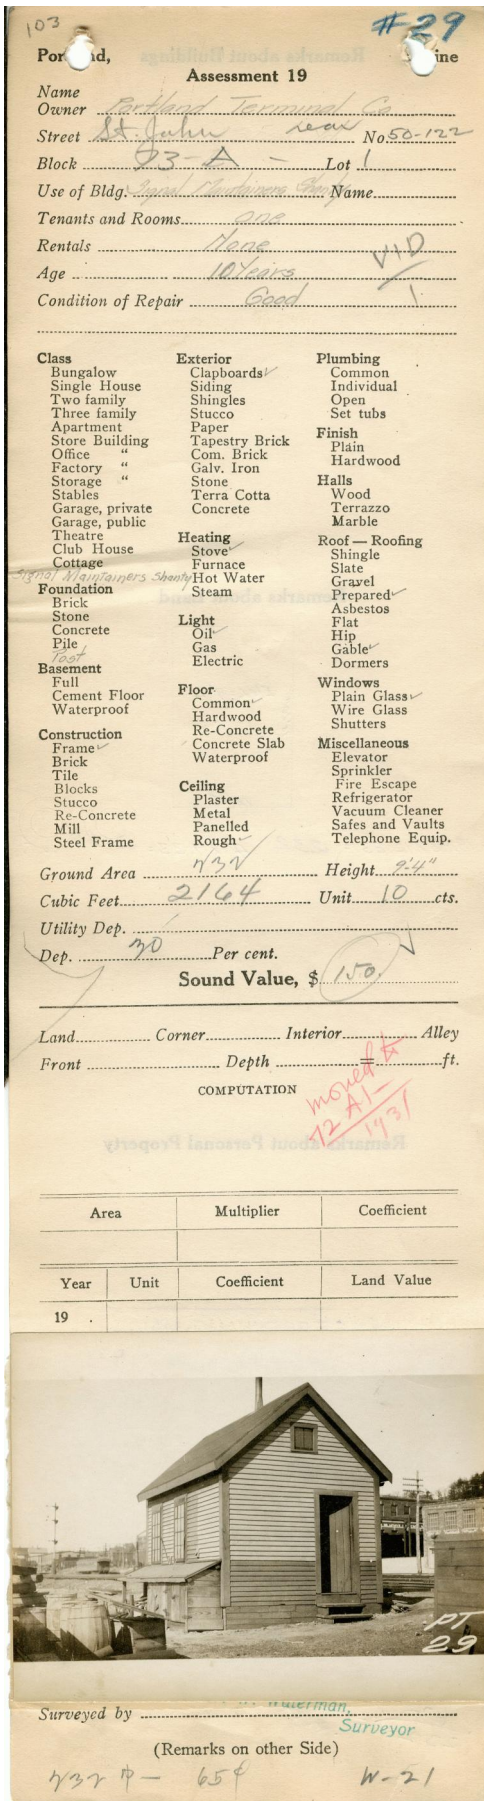 103
#29
Portland, Maine
Assessment 19
Name
Owner Portland Terminal Co
Street St. John rear No 50-122
Block 73-A - Lot 1
Use of Bldg. Signal Maintainers Shanty Name
Tenants and Rooms one
Rentals None
Age 10 Years
Condition of Repair Good
Class
Bungalow
Single House
Two family
Three family
Apartment
Store Building
Office "
Factory "
Storage "
Stables
Garage, private
Garage, public
Theatre
Club House
Cottage
Signal Maintainers Shanty
Foundation
Brick
Stone
Concrete
Pile
Post
Basement
Full
Cement Floor
Waterproof
Construction
Frame ✓
Brick
Tile
Blocks
Stucco
Re-Concrete
Mill
Steel Frame
Exterior
Clapboards ✓
Siding
Shingles
Stucco
Paper
Tapestry Brick
Com. Brick
Galv. Iron
Stone
Terra Cotta
Concrete
Heating
Stove ✓
Furnace
Hot Water
Steam
Light
Oil ✓
Gas
Electric
Floor
Common ✓
Hardwood
Re-Concrete
Concrete Slab
Waterproof
Ceiling
Plaster
Metal
Panelled
Rough ✓
Plumbing
Common
Individual
Open
Set tubs
Finish
Plain
Hardwood
Halls
Wood
Terrazzo
Marble
Roof — Roofing
Shingle
Slate
Gravel
Prepared ✓
Asbestos
Flat
Hip
Gable ✓
Dormers
Windows
Plain Glass ✓
Wire Glass
Shutters
Miscellaneous
Elevator
Sprinkler
Fire Escape
Refrigerator
Vacuum Cleaner
Safes and Vaults
Telephone Equip.
Ground Area 232 Height 9'-4"
Cubic Feet 2164 Unit 10 cts.
Utility Dep.
Dep. 30 Per cent.
Sound Value, $ 150.
Land Corner Interior Alley
Front Depth = ft.
COMPUTATION
moved to
72 A1-
1931
Area Multiplier Coefficient
Year Unit Coefficient Land Value
19 .
PT
29
Surveyed by Waterman,
Surveyor
(Remarks on other Side)
232 - 65¢ W-21